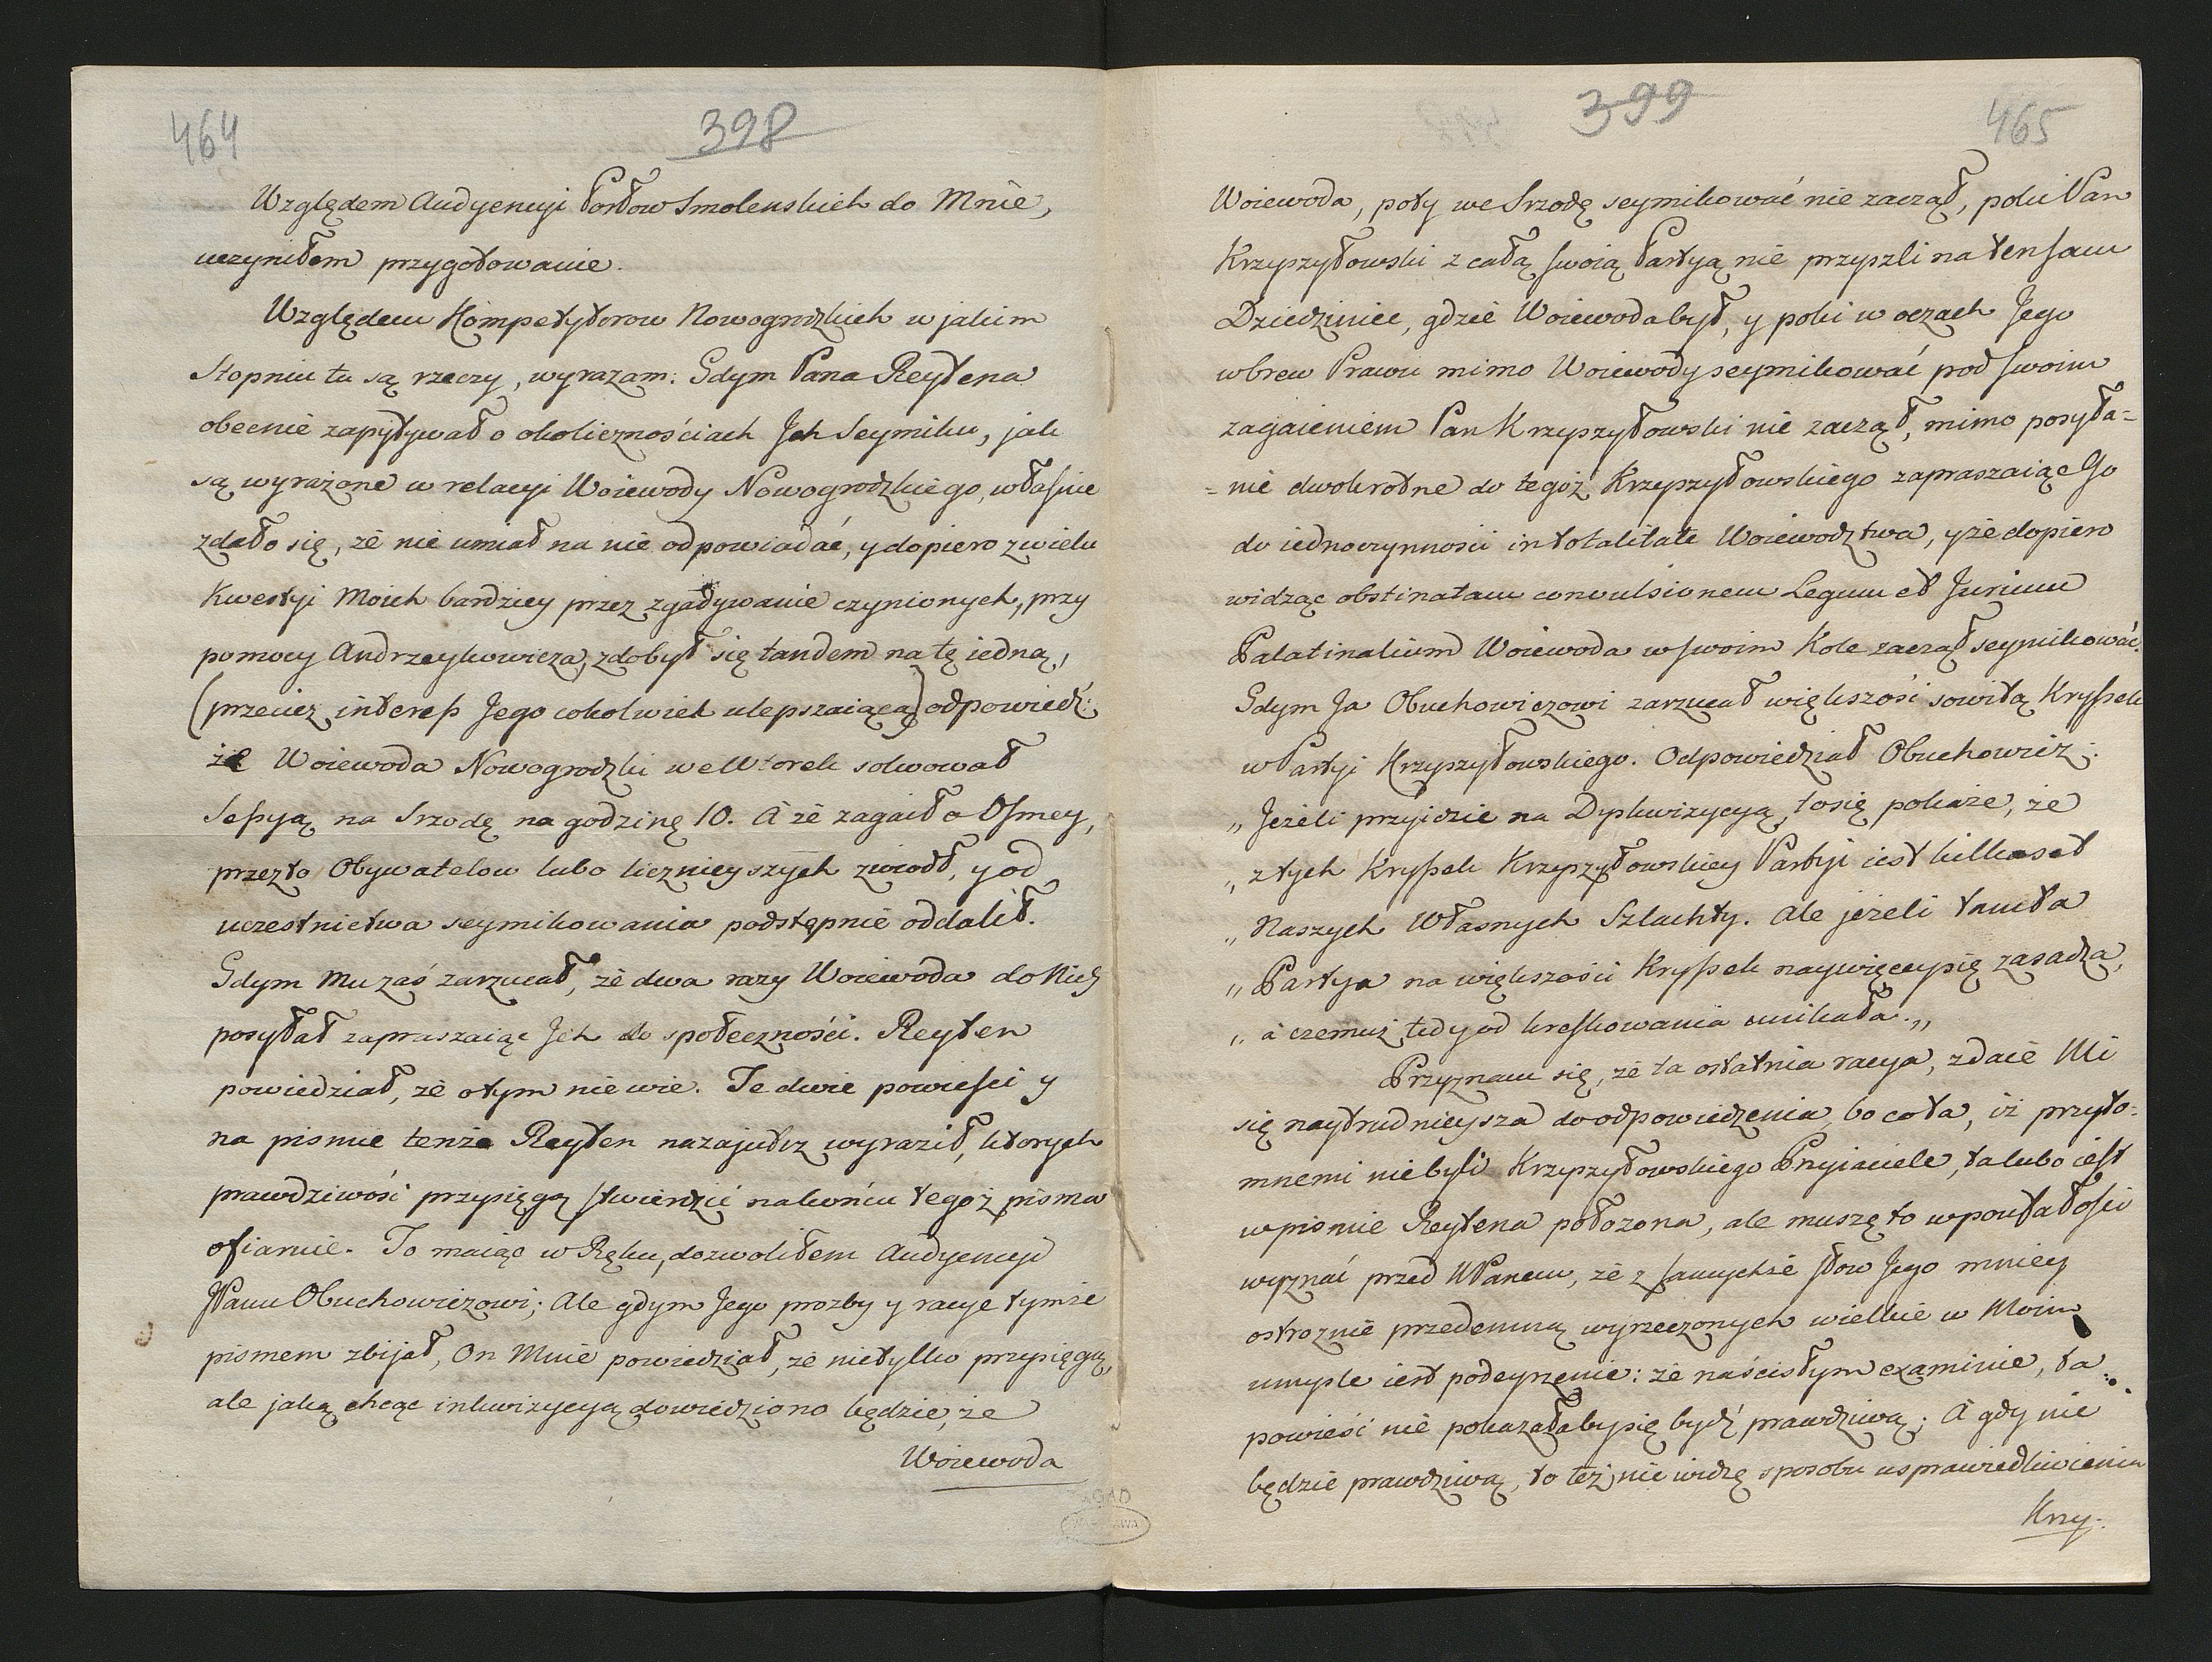 464
398
Względem Audyencyi Posłow Smolenskich do Mnie,
uczyniłem przygotowanie.
Względem Kompetytorow Nowogrodzkich w jakim
Stopniu tu są rzeczy, wyrazam: Gdym Pana Reytena
obecnie zapytywał o okolicznościach Jch Seymiku, jak
są wyrażone w relacyi Woiewody Nowogrodzkiego, własnie
zdało się, że nie umiał na nie odpowiadać, y dopiero z wielu
Kwestyi Moich bardziey przez zgadywanie czynionych, przy
pomocy Andrzeykowicza, zdobył się tandem na tę iedną,
(przecież interess Jego cokolwiek ulepszaiącą) odpowiedź:
że Woiewoda Nowogrodzki we Wtorek solwował
Sessyą na Srzodę na godzinę 10. A że zagaił o Osmey,
przez to Obywatelow lubo licznieyszych zwiodł, y od
uczestnictwa seymikowania podstępnie oddalił.
Gdym Mu zaś zarzucał, że dwa razy Woiewoda do Nich
posyłał zapraszaiąc Jch do społeczności. Reyten
powiedział, że o tym nie wie. Te dwie powieści y
na pismie tenże Reyten nazajutrz wyraził, ktorych
prawdziwość przysięgą stwierdzić na końcu tegoż pisma
ofiaruie. To maiąc w Ręku, dozwoliłem Audyencyi
JPanu Obuchowiczowi; Ale gdym Jego prozby y racye tymże
pismem zbijał, On Mnie powiedział, że nie tylko przysięgą,
ale jaką chcąc inkwizycyą dowiedziono będzie, że
Woiewoda
399
465
Woiewoda, poty we Srzodę seymikować nie zaczął, poki Pan
Krzyszyłowski z całą swoią Partyą nie przyszli na ten sam
Dziedziniec, gdzie Woiewoda był, y poki w oczach Jego
wbrew Prawu mimo Woiewody seymikować pod swoim
zagaieniem Pan Krzyszyłowski nie zaczął, mimo posyła=
=nie dwokrotne do tegoż Krzyszyłowskiego zapraszaiąc Go
do iednoczynności in totalitate Woiewodztwa, y że dopiero
widząc obstinatam convulsionem Legum et Jurium
Palatinalium Woiewoda w swoim Kole zaczął seymikować.
Gdym Ja Obuchowiczowi zarzucał większość sowitą Kryssek
w Partyi Krzyszyłowskiego. Odpowiedział Obuchowicz:
„Jeżeli przyidzie na Dyskwizycyą, to się pokaże, że
„z tych Kryssek Krzyszyłowskiey Partyi iest kilkaset
„Naszych Własnych Szlachty. Ale jeżeli tamta
„Partya na większości Kryssek naywięcey się zasadza,
„a czemuż tedy od kreskowania unikała.„
Przyznam się, że ta ostatnia racya, zdaie Mi
się naytrudnieysza do odpowiedzenia, bo co ta, iż przyto=
mnemi nie byli Krzyszyłowskiego Przyiaciele, ta lubo iest
w pismie Reytena położona, ale muszę to w poufałości
wyznać przed WPanem, że z samychże słow Jego mniey
ostroznie przedemną wyrzeczonych wielkie w Moim
umysle iest podeyrzenie: że na ścisłym examinie, ta
powieść nie pokazałaby się bydź prawdziwą; A gdy nie
będzie prawdziwą, to też nie widzę sposobu usprawiedliwienia
Krzy: